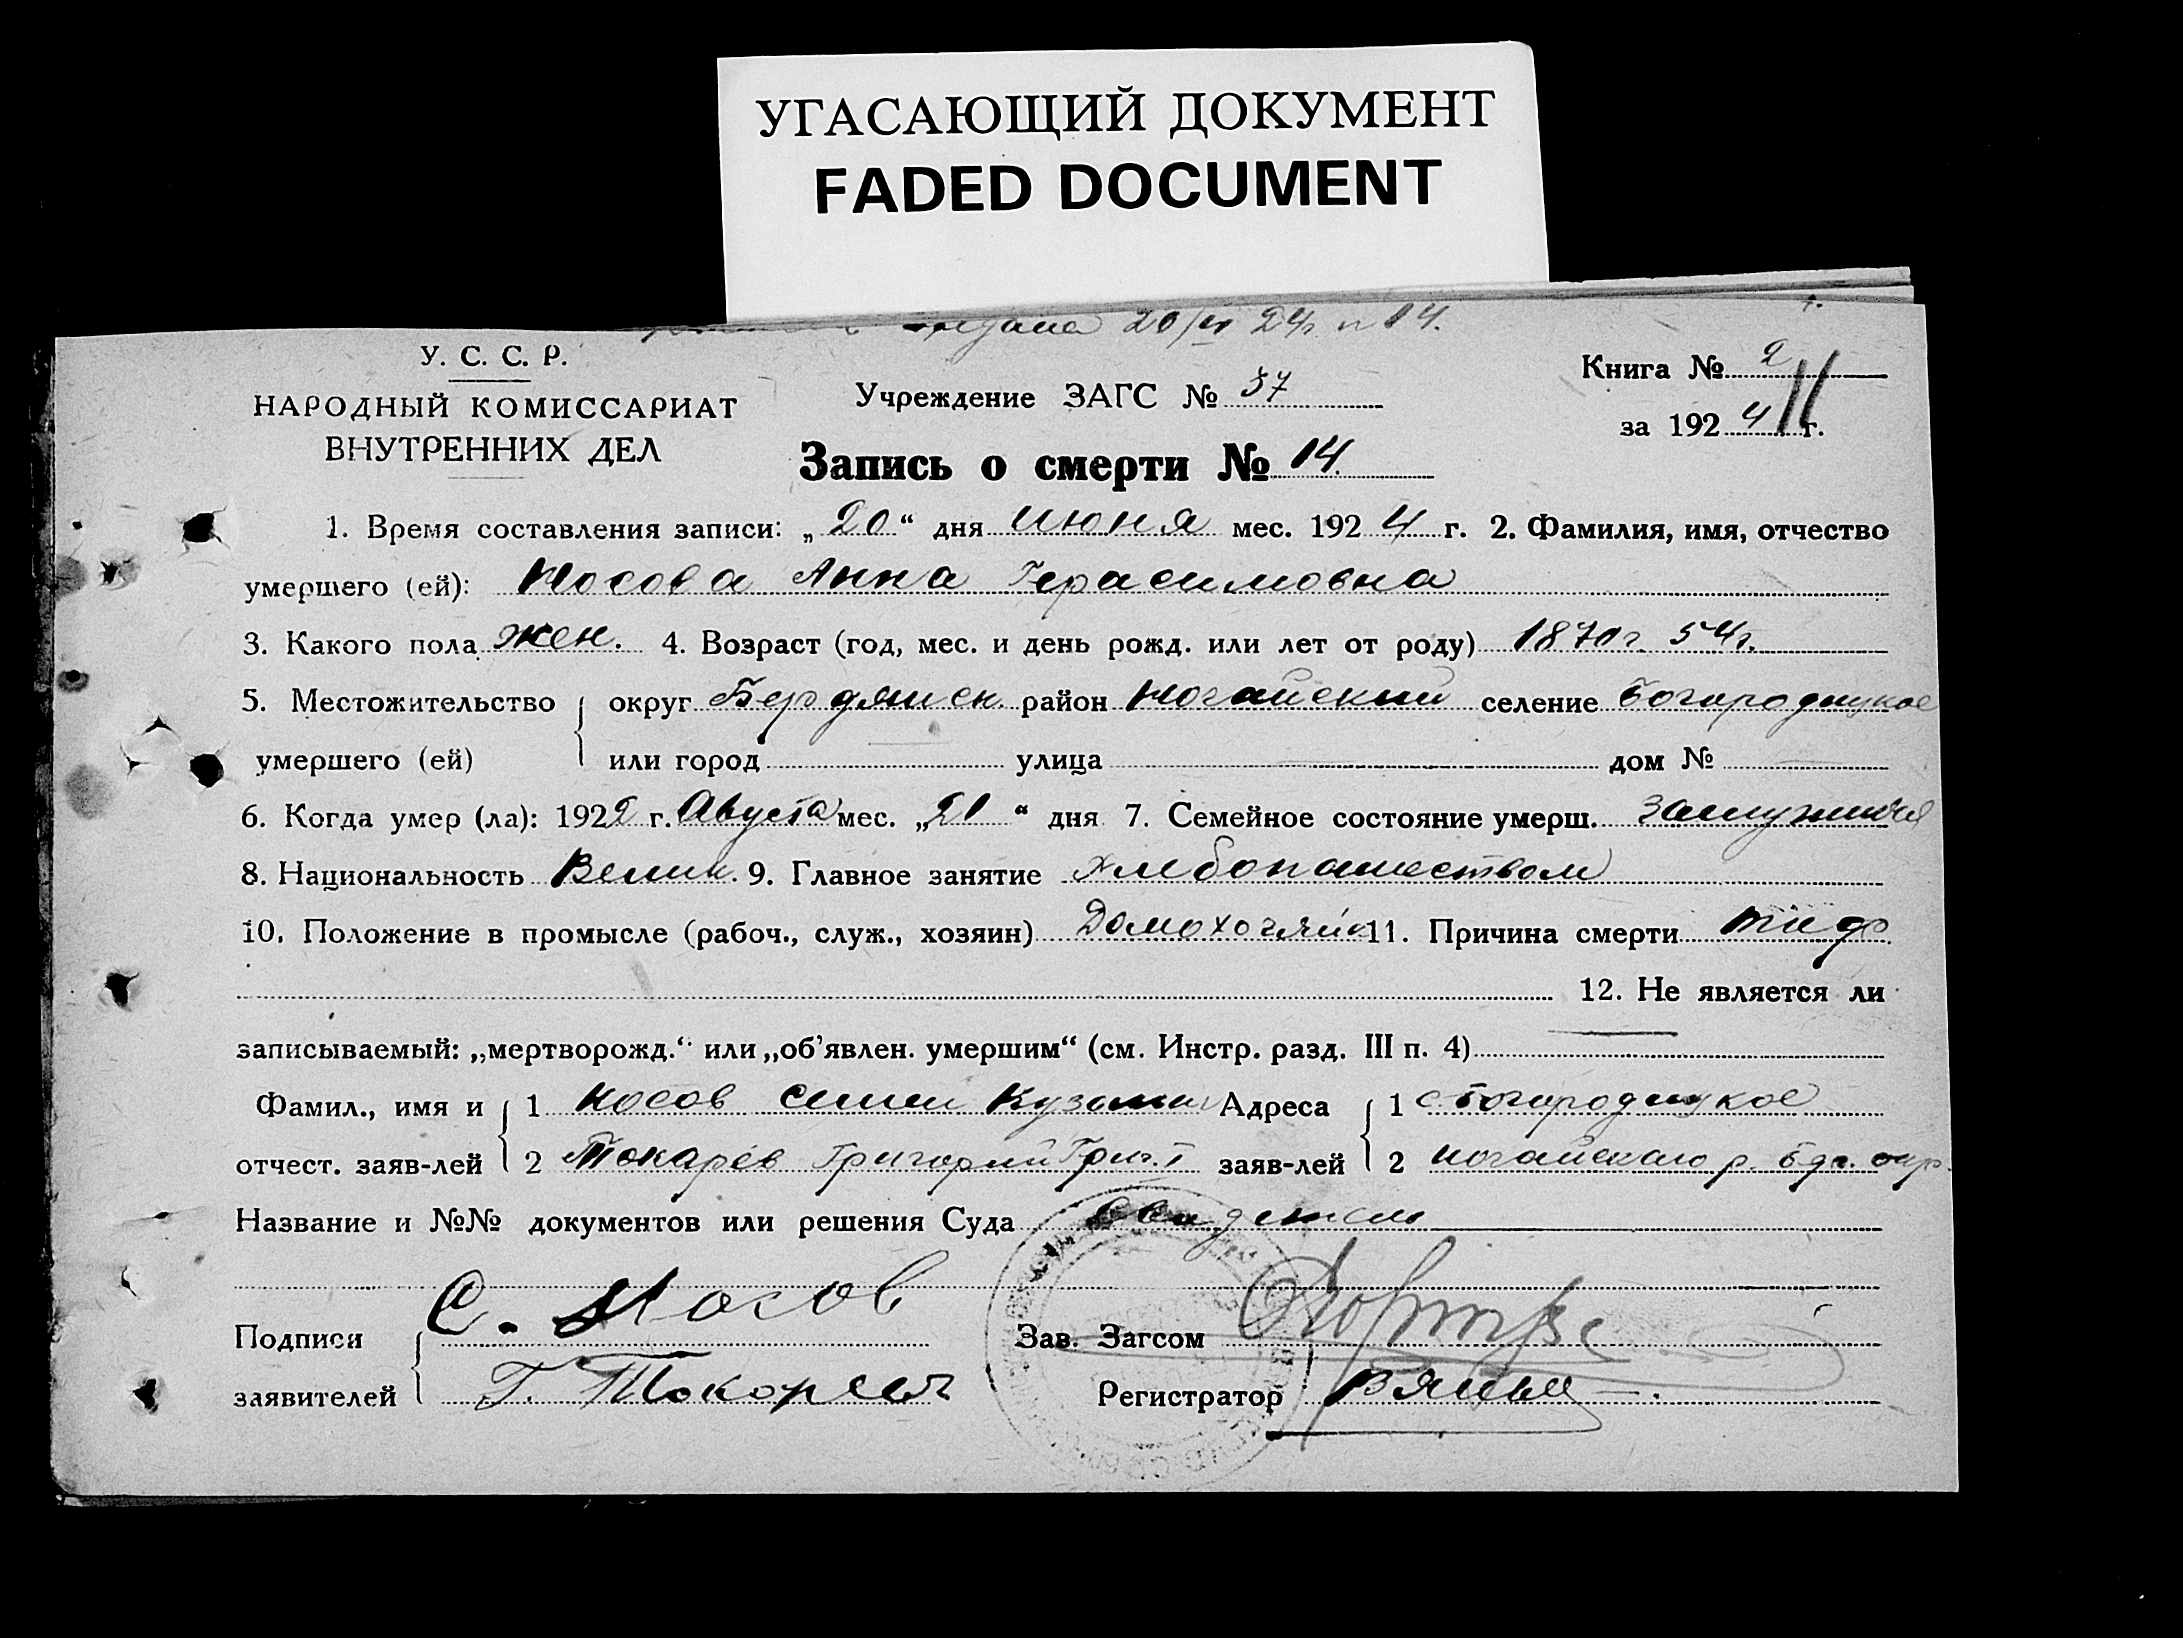 УГАСАЮЩИЙ ДОКУМЕНТ
FADED DOCUMENT
20/VI 24г. № 14.
У. С. С. Р.
НАРОДНЫЙ КОМИССАРИАТ
ВНУТРЕННИХ ДЕЛ
Учреждение ЗАГС № 37
Книга № 2
за 1924 г.
Запись о смерти № 14.
1. Время составления записи: „20“ дня Июня мес. 1924 г. 2. Фамилия, имя, отчество
умершего (ей): Носова Анна Герасимовна
3. Какого пола жен. 4. Возраст (год, мес. и день рожд. или лет от роду) 1870 г. 54 г.
5. Местожительство округ Бердянск. район Ногайский селение Богородицкое
умершего (ей) или город улица дом №
6. Когда умер (ла): 1922 г. Августа мес. „21“ дня 7. Семейное состояние умерш. Замужняя
8. Национальность Велик. 9. Главное занятие Хлебопашеством
10. Положение в промысле (рабоч., служ., хозяин) Домохозяйк 11. Причина смерти тиф
12. Не является ли
записываемый: „мертворожд.“ или „об’явлен. умершим“ (см. Инстр. разд. III п. 4)
Фамил., имя и 1 Носов Семен Кузьмич Адреса 1 с Богородицкое
отчест. заяв-лей 2 Токарев Григорий Григ. заяв-лей 2 Ногайского р. Бдг. окр.
Название и №№ документов или решения Суда Свидетели
Подписи С. Носов Зав. Загсом
заявителей Г. Токорев Регистратор